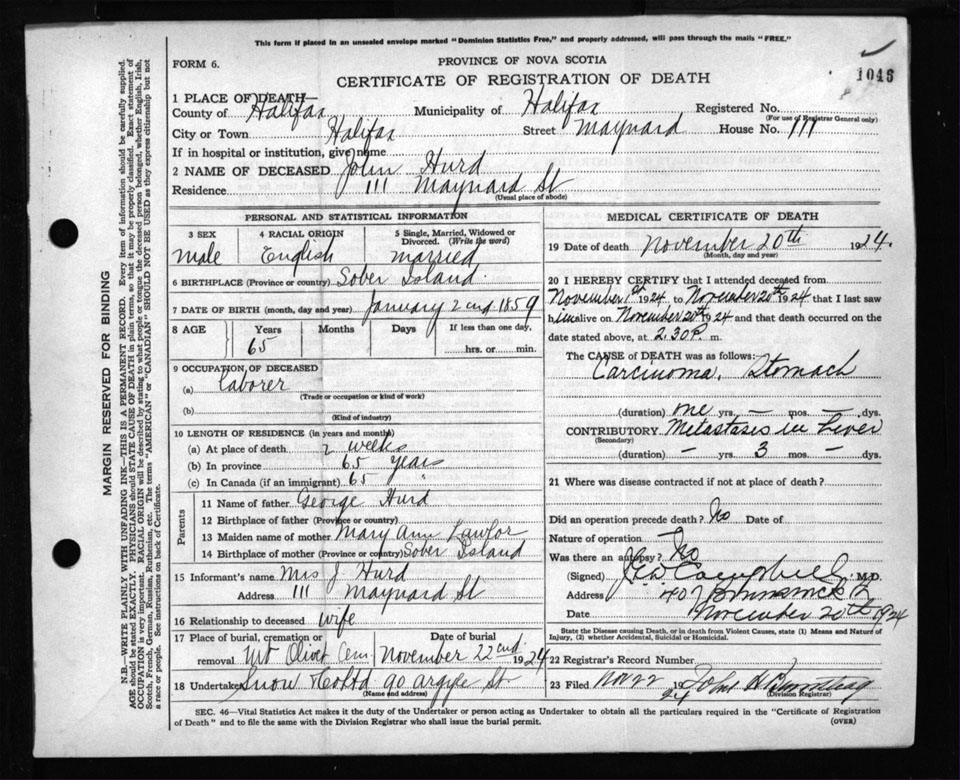 This form if placed in an unsealed envelope marked "Dominion Statistics Free," and properly addressed, will pass through the mails "FREE."
FORM 6.
PROVINCE OF NOVA SCOTIA
1045
CERTIFICATE OF REGISTRATION OF DEATH
1 PLACE OF DEATH—
County of Halifax Municipality of Halifax Registered No.
(For use of Registrar General only)
City or Town Halifax Street Maynard House No. 111
If in hospital or institution, give name
2 NAME OF DECEASED John Hurd
Residence 111 Maynard St
(Usual place of abode)
PERSONAL AND STATISTICAL INFORMATION
3 SEX 4 RACIAL ORIGIN 5 Single, Married, Widowed or
Divorced. (Write the word)
male English married
6 BIRTHPLACE (Province or country) Sober Island
7 DATE OF BIRTH (month, day and year) January 2nd 1859
8 AGE Years Months Days If less than one day,
65 hrs. or min.
9 OCCUPATION OF DECEASED
(a) laborer
(Trade or occupation or kind of work)
(b)
(Kind of industry)
10 LENGTH OF RESIDENCE (in years and months)
(a) At place of death 2 weeks
(b) In province 65 years
(c) In Canada (if an immigrant) 65 "
Parents
11 Name of father George Hurd
12 Birthplace of father (Province or country)
13 Maiden name of mother Mary Ann Lawlor
14 Birthplace of mother (Province or country) Sober Island
15 Informant's name Mrs J Hurd
Address 111 Maynard St
16 Relationship to deceased wife
17 Place of burial, cremation or Date of burial
removal Mt Olivet Cem November 22nd 1924
18 Undertaker Snow & Co Ltd 90 Argyle St
(Name and address)
MEDICAL CERTIFICATE OF DEATH
19 Date of death November 20th 1924.
(Month, day and year)
20 I HEREBY CERTIFY that I attended deceased from
November 1st 1924 to November 20th 1924 that I last saw
him alive on November 20th 1924 and that death occurred on the
date stated above, at 2.30 P. m.
The CAUSE of DEATH was as follows:
Carcinoma, Stomach
(duration) one yrs. — mos. — dys.
CONTRIBUTORY Metastases in Liver
(Secondary)
(duration) — yrs. 3 mos. — dys.
21 Where was disease contracted if not at place of death?
Did an operation precede death? No Date of
Nature of operation —
Was there an autopsy? No
(Signed) Campbell, M.D.
Address 407 Brunswick St
Date November 20th 1924
State the Disease causing Death, or in death from Violent Causes, state (1) Means and Nature of
Injury, (2) whether Accidental, Suicidal or Homicidal.
22 Registrar's Record Number
23 Filed Nov 22 1924 John
(Division Registrar)
SEC. 46—Vital Statistics Act makes it the duty of the Undertaker or person acting as Undertaker to obtain all the particulars required in the "Certificate of Registration
of Death" and to file the same with the Division Registrar who shall issue the burial permit. (OVER)
MARGIN RESERVED FOR BINDING
N.B.—WRITE PLAINLY WITH UNFADING INK—THIS IS A PERMANENT RECORD. Every item of information should be carefully supplied.
AGE should be stated EXACTLY. PHYSICIANS should STATE CAUSE OF DEATH in plain terms, so that it may be properly classified. Exact statement of
OCCUPATION is very important. RACIAL ORIGIN will be described by stating to what people or tongue the deceased person belonged, whether English, Irish,
Scotch, French, German, Russian, Ruthenian, etc. The terms "AMERICAN" or "CANADIAN" SHOULD NOT BE USED as they express citizenship but not
a race or people. See instructions on back of Certificate.